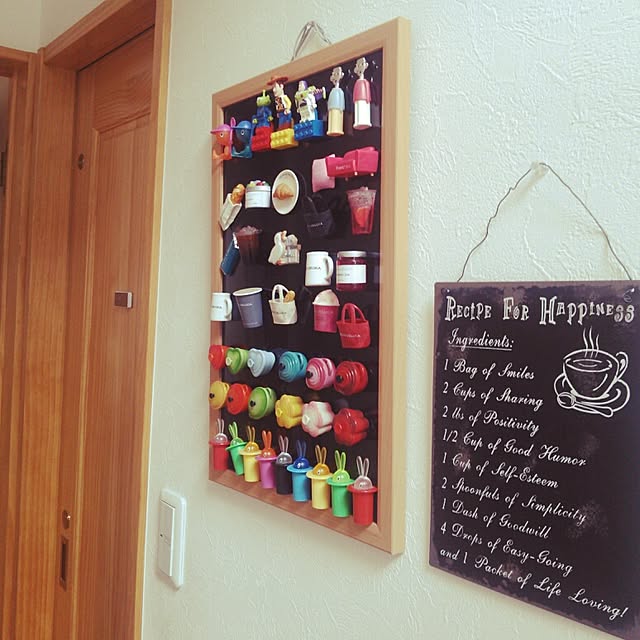 Recipe For Happiness
Ingredients:
1 Bag of Smiles
2 Cups of Sharing
2 lbs of Positivity
1/2 Cup of Good Humor
1 Cup of Self-Esteem
2 Spoonfuls of Simplicity
1 Dash of Goodwill
4 Drops of Easy-Going
and 1 Packet of Life Loving!